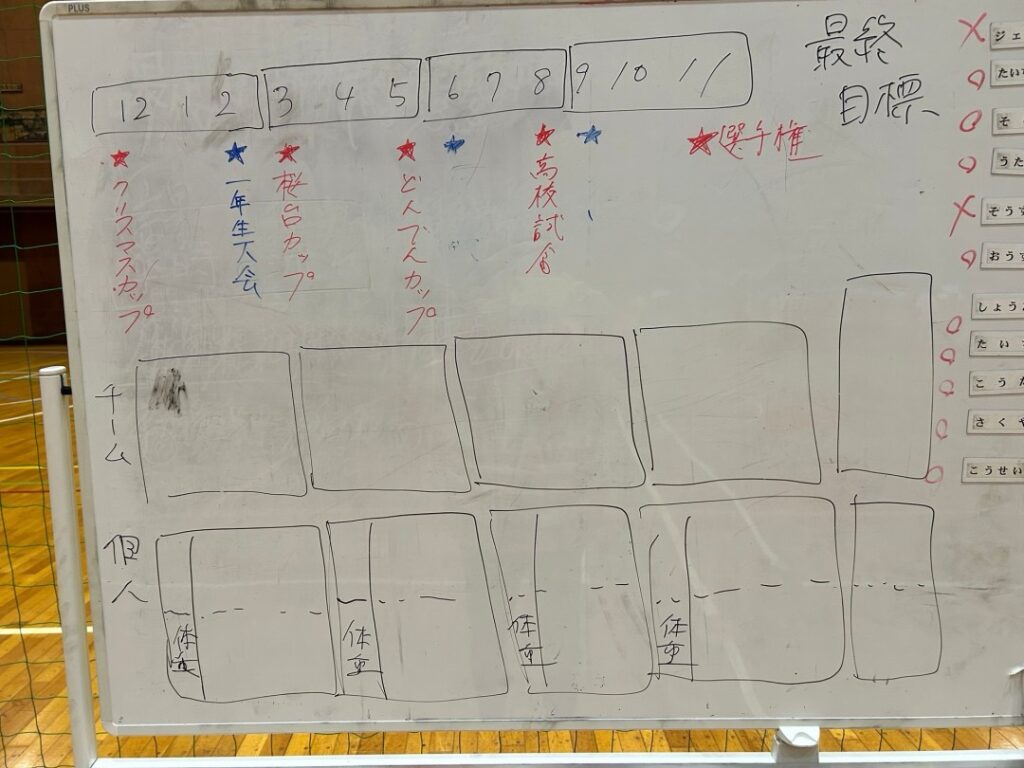 PLUS
12 1 2 3 4 5 6 7 8 9 10 11
最終
目標
★クリスマスカップ
★一年生大会
★桜台カップ
★どんでんカップ
★
★高校試合
★
★選手権
チーム
個人
体重
体重
体重
体重
× ジェ
○ たい
○ そ
○ うた
× そうす
○ おうす
○ しょう
○ たい
○ こうた
○ さくや
○ こうせい